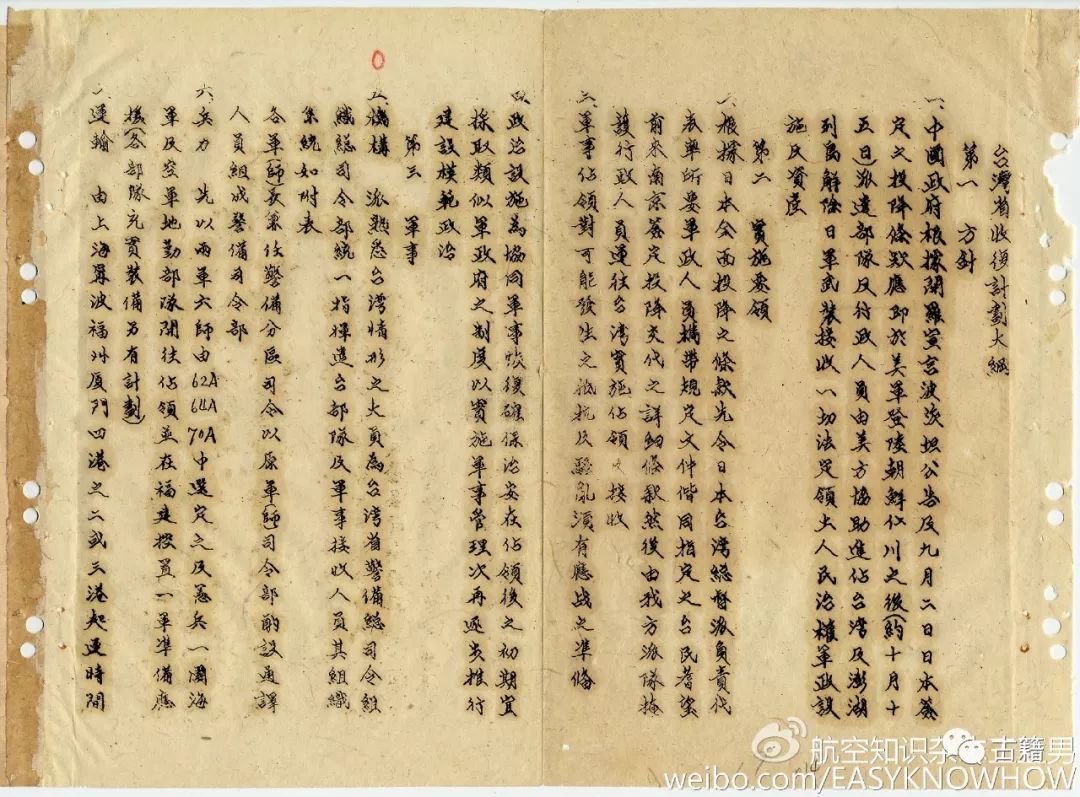 台灣省收復計劃大綱
第一 方針
一、中國政府根據開羅宣言波茨坦公告及九月二日日本簽
定之投降條款應即於美軍登陸朝鮮仁川之後(約十月十
五日)派遣部隊及行政人員由美方協助進佔台灣及澎湖
列島解除日軍武裝接收一切法定領土人民治權軍政設
施及資產
第二 實施要領
二、根據日本全面投降之條款先令日本台灣總督派負責代
表率所要軍政人員攜帶規定文件偕同指定之台民耆望
前來南京簽定投降交代之詳細條款然後由我方派隊掩
護行政人員運往台灣實施佔領及接收
三、軍事佔領對可能發生之抵抗及騷亂須有應战之準備
四、政治設施為協同軍事恢復確保治安在佔領後之初期宜
採取類似軍政府之制度以實施軍事管理次再逐步推行
建設模範政治
第三 軍事
五、機構 派熟悉台灣情形之大員為台灣省警備總司令組
織總司令部統一指揮進台部隊及軍事接收人員其組織
系統如附表
各軍(師)長兼任警備分區司令以原軍(師)司令部酌設通譯
人員組成警備司令部
六、兵力 先以兩軍六師由62A 64A 70A中選定之及憲兵一團海
軍及空軍地勤部隊開往佔領並在福建控置一軍準備應
援(各部隊充實裝備另有計劃)
運輸 由上海寧波福州厦門四港之二或三港起運時間
航空知识杂志
古籍男
weibo.com/EASYKNOWHOW